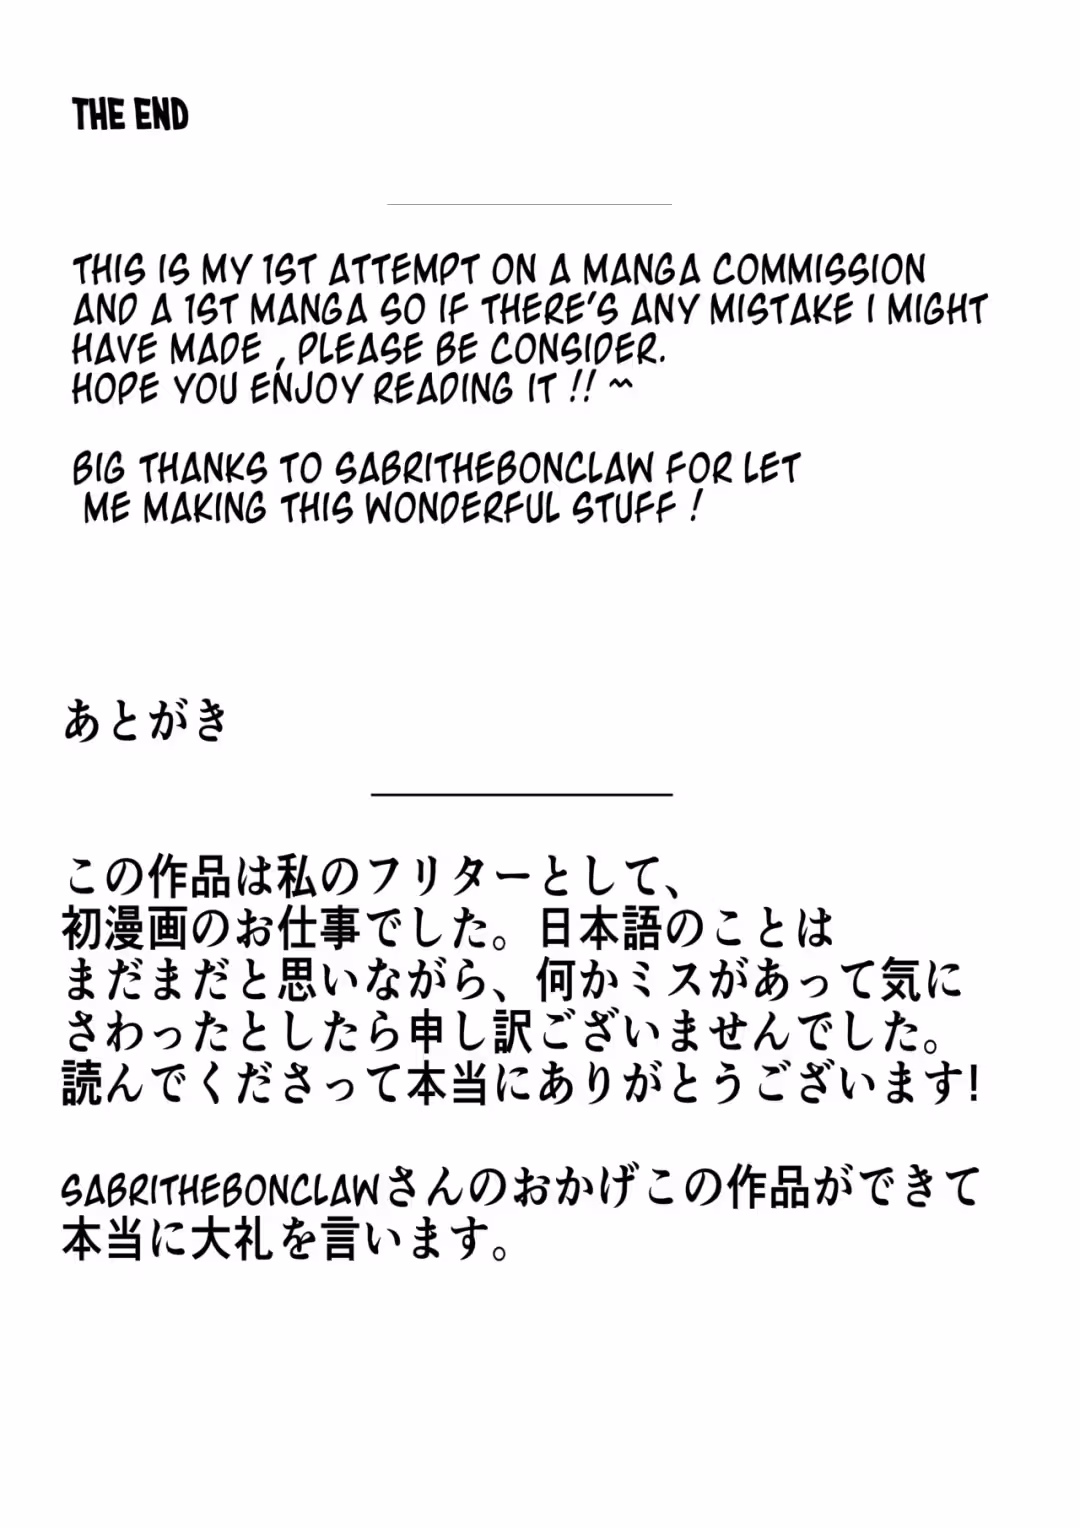 THE END
THIS IS MY 1ST ATTEMPT ON A MANGA COMMISSION
AND A 1ST MANGA SO IF THERE'S ANY MISTAKE I MIGHT
HAVE MADE , PLEASE BE CONSIDER.
HOPE YOU ENJOY READING IT !! ~
BIG THANKS TO SABRITHEBONCLAW FOR LET
ME MAKING THIS WONDERFUL STUFF !
あとがき
この作品は私のフリターとして、
初漫画のお仕事でした。日本語のことは
まだまだと思いながら、何かミスがあって気に
さわったとしたら申し訳ございませんでした。
読んでくださって本当にありがとうございます!
SABRITHEBONCLAWさんのおかげこの作品ができて
本当に大礼を言います。